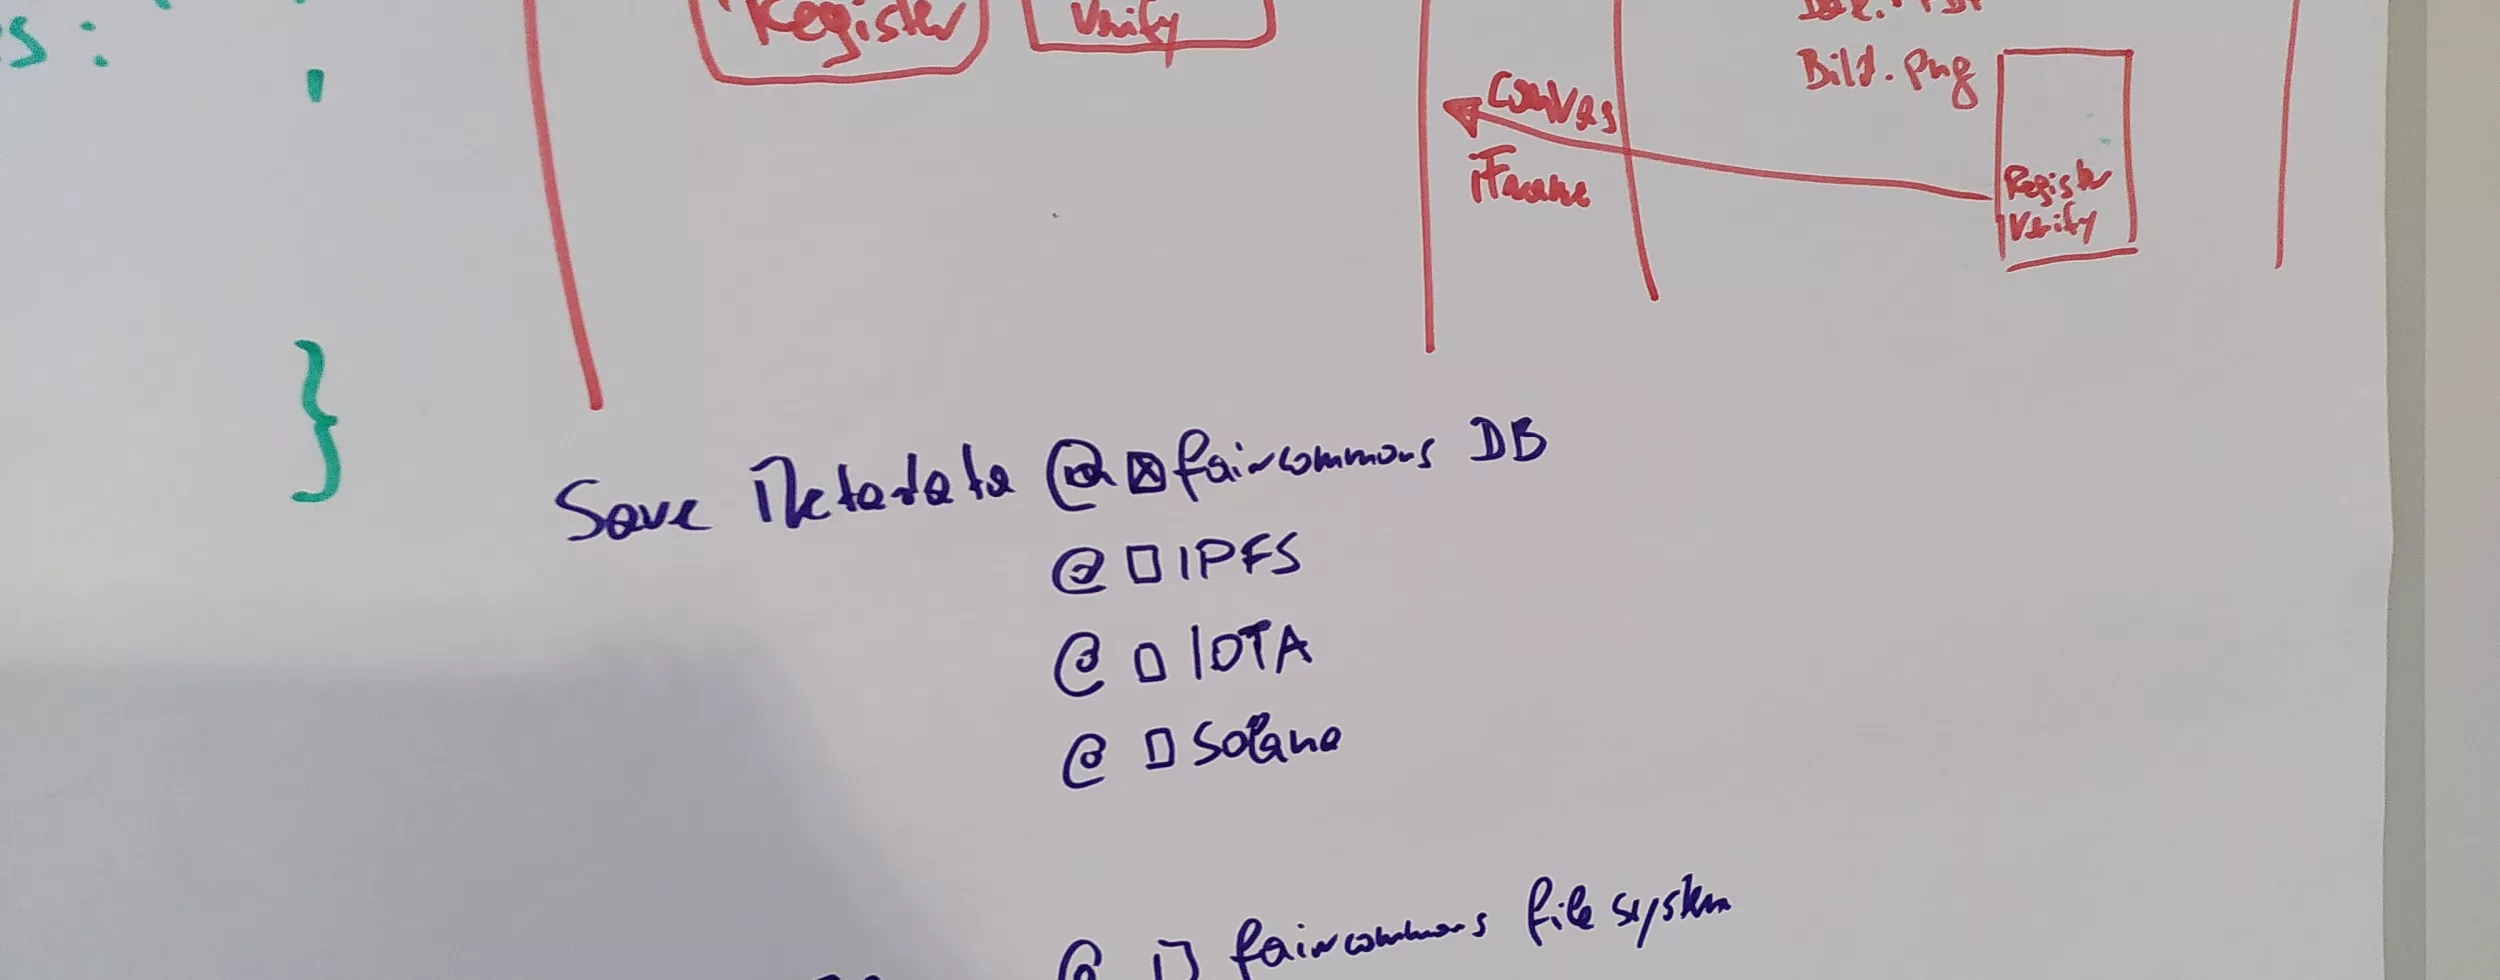 s: ,
Register Verify
Bild.png
Canvas
iFrame
Register
Verify
}
Save Metadata @ ☒ faircommons DB
@ ☐ IPFS
@ ☐ IOTA
@ ☐ Solana
@ ☐ faircommons file system